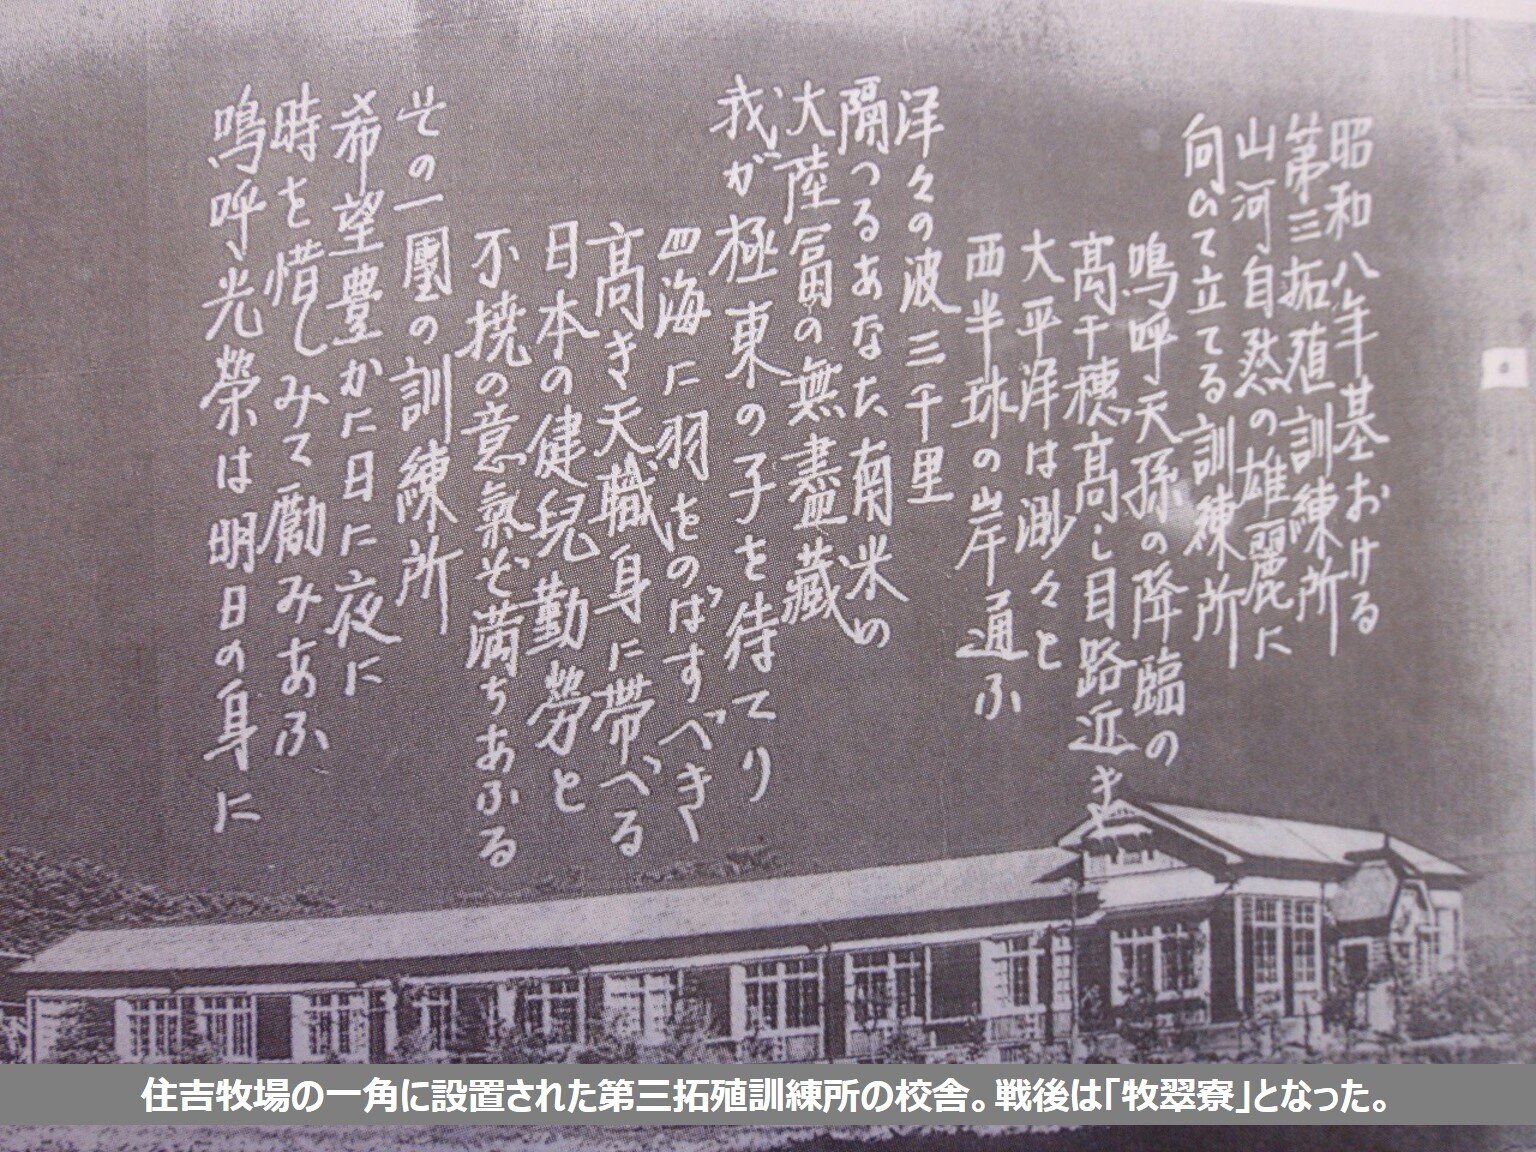 昭和八年基おける
第三拓殖訓練所
山河自然の雄麗に
向ひて立てる訓練所
鳴呼天孫の降臨の
高千穂高し目路近き
大平洋は渺々と
西半球の岸通ふ
洋々の波三千里
隔つるあなた南米の
大陸冨の無盡蔵
我が極東の子を待てり
四海に羽をのばすべき
高き天職身に帯べる
日本の健兒勤勞と
不撓の意氣ぞ満ちあふる
その一團の訓練所
希望豊かに日に夜に
時を惜しみて勵みあふ
鳴呼光榮は明日の身に
住吉牧場の一角に設置された第三拓殖訓練所の校舎。戦後は「牧翠寮」となった。